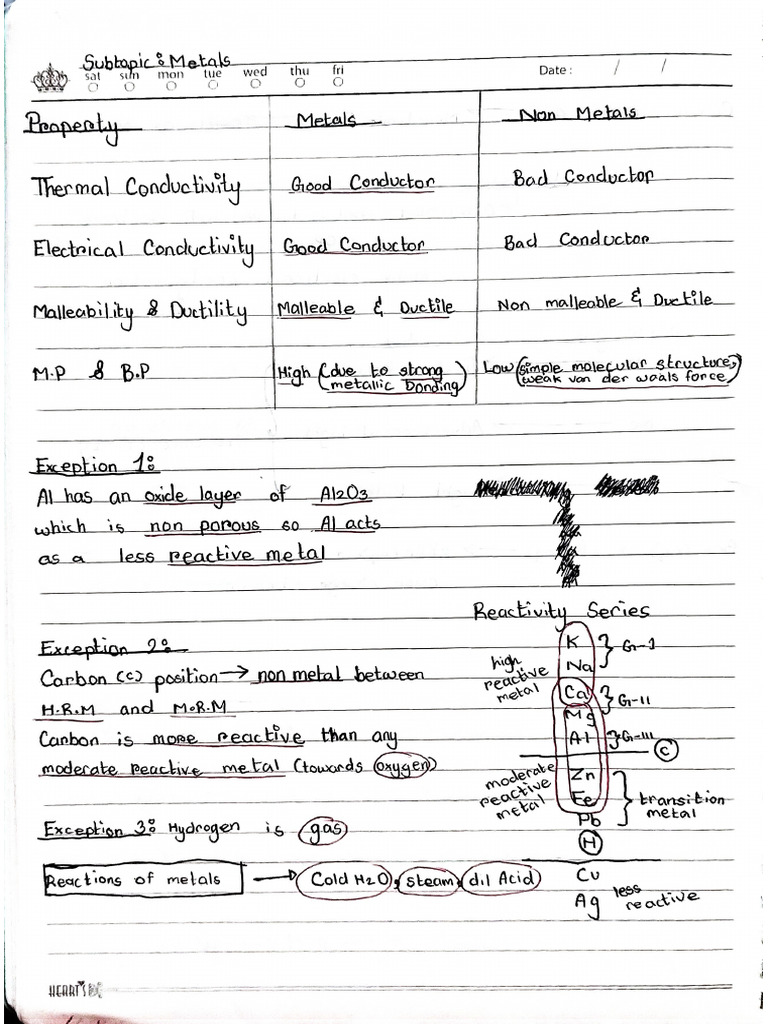 Subtopic: Metals
sat sun mon tue wed thu fri
Date : / /
Property Metals Non Metals
Thermal Conductivity Good Conductor Bad Conductor
Electrical Conductivity Good Conductor Bad Conductor
Malleability & Ductility Malleable & Ductile Non malleable & Ductile
M.P & B.P High (due to strong metallic bonding) Low (simple molecular structure, weak van der waals force)
Exception 1:
Al has an oxide layer of Al2O3
which is non porous so Al acts
as a less reactive metal
Exception 2:
Carbon (c) position → non metal between
H.R.M and M.R.M
Carbon is more reactive than any
moderate reactive metal (towards oxygen)
Exception 3: Hydrogen is gas
Reactions of metals → Cold H2O, steam, dil Acid
Reactivity Series
high reactive metal
K
Na
G-I
Ca
Mg
G-II
Al
G-III
C
moderate reactive metal
Zn
Fe
Pb
transition metal
H
Cu
Ag
less reactive
HEART'S